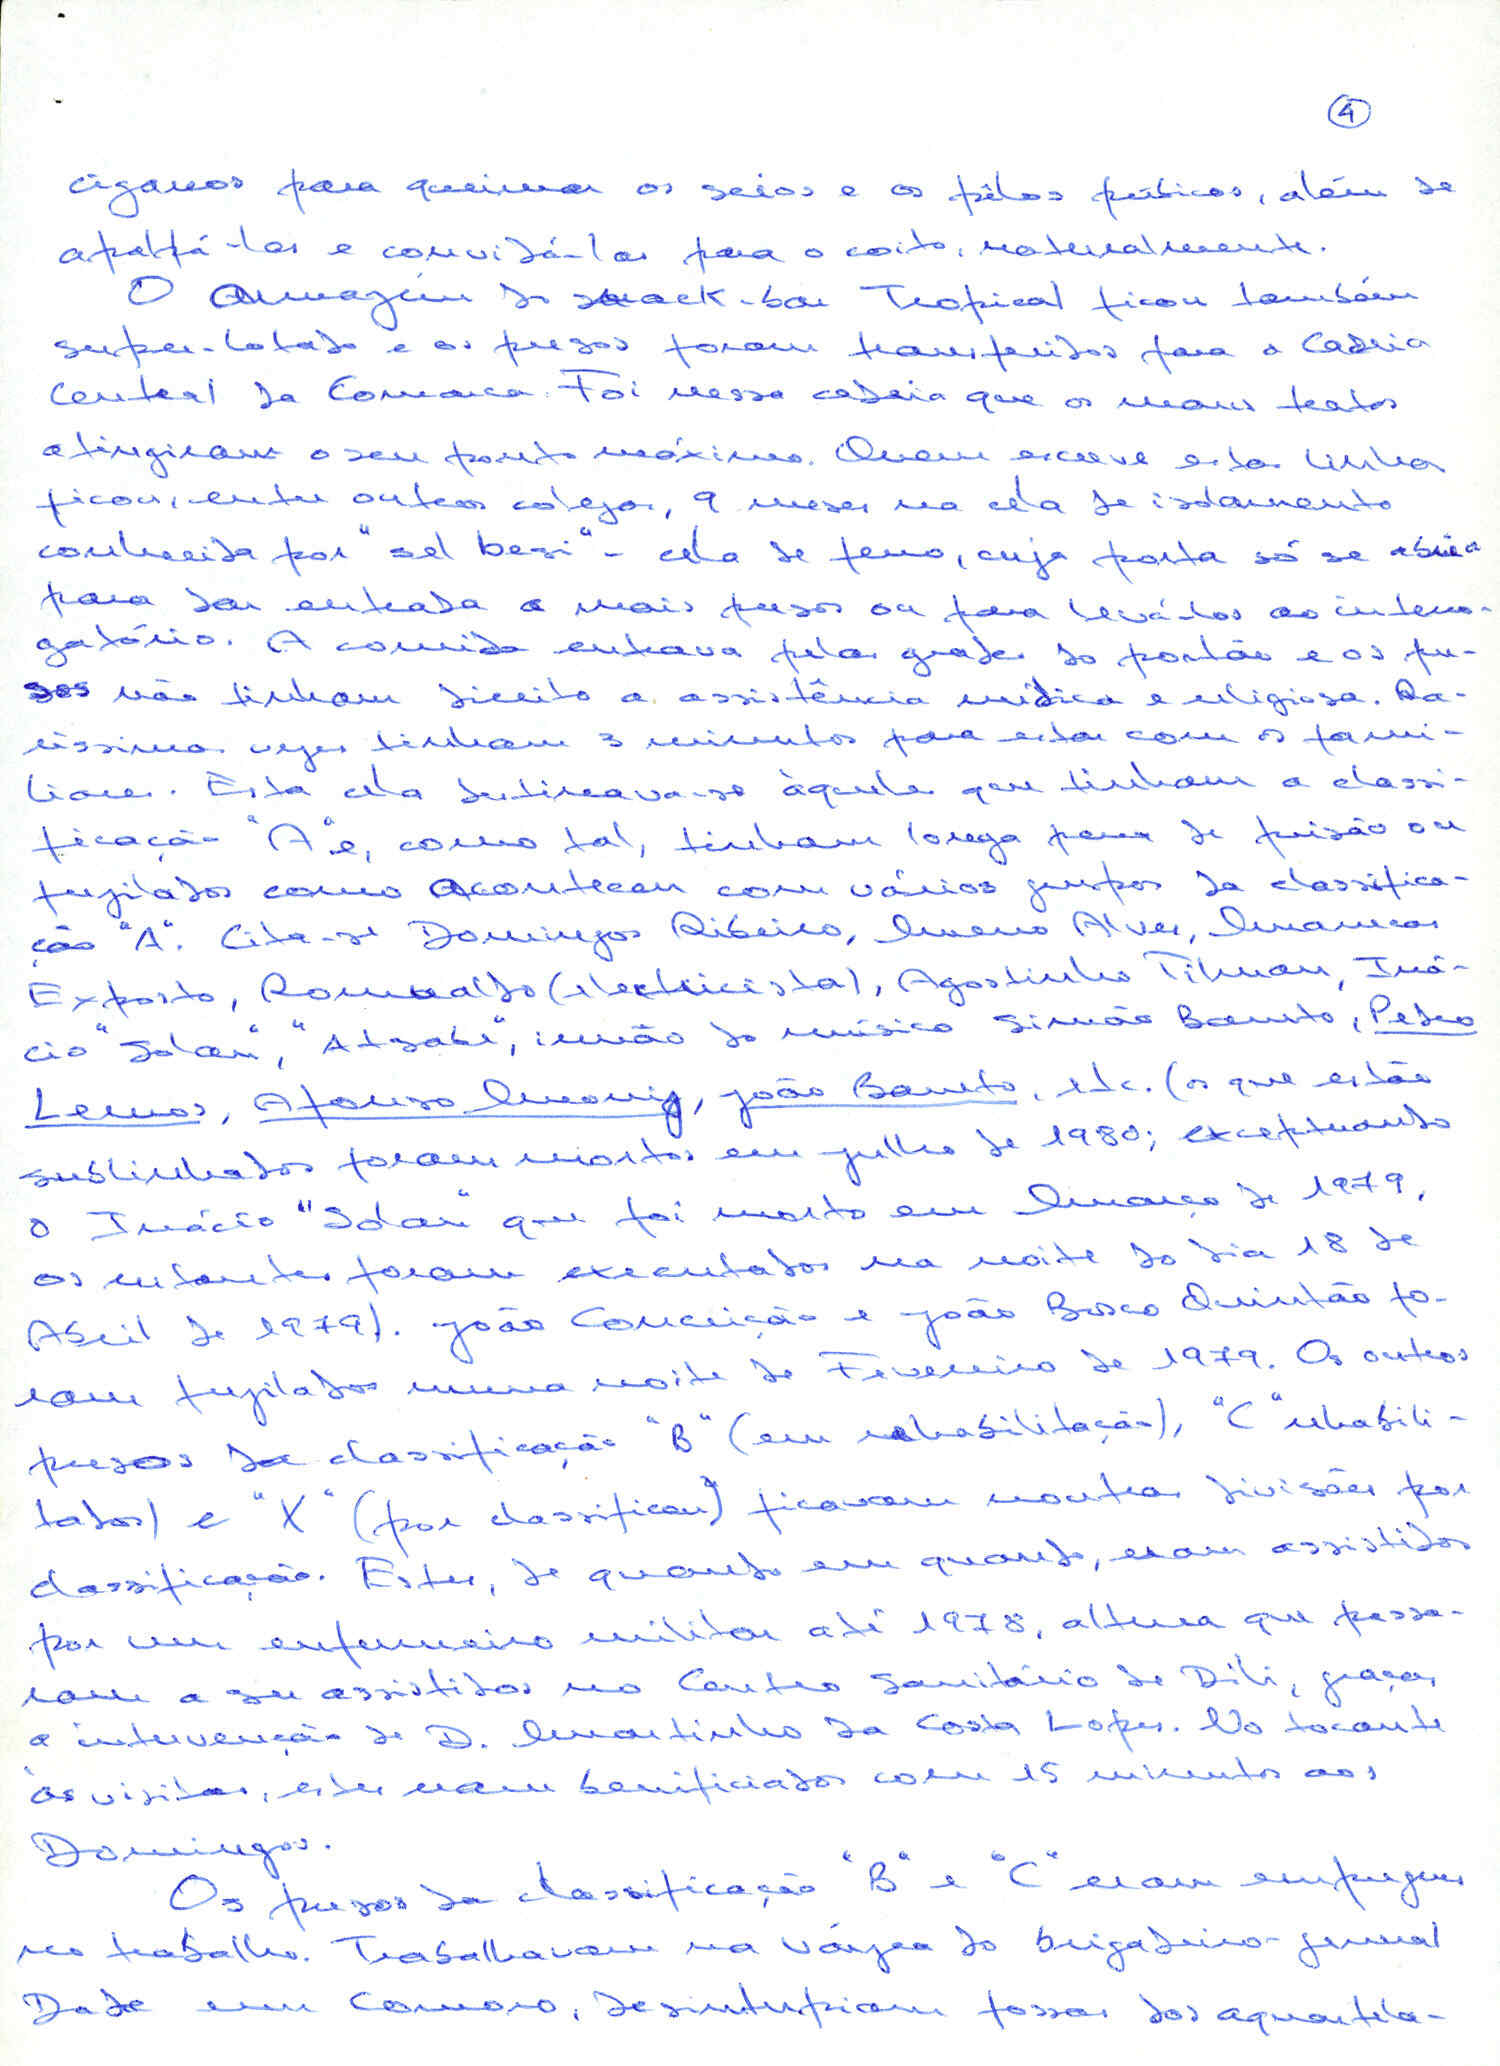 4
cigarros para queimar os seios e os pêlos púbicos, além de
apalpá-las e convidá-las para o coito, naturalmente.
O Armazém do snack-bar Tropical ficou também
super-lotado e os presos foram transferidos para a Cadeia
Central da Comarca. Foi nessa cadeia que os maus tratos
atingiram o seu ponto máximo. Quem escreve estas linhas
ficou, entre outros colegas, 9 meses na cela de isolamento
conhecida por "sel besi" - cela de ferro, cuja porta só se abria
para dar entrada a mais presos ou para levá-los ao interro-
gatório. A comida entrava pelas grades do portão e os pre-
sos não tinham direito a assistência médica e religiosa. Ra-
ríssimas vezes tinham 3 minutos para estar com os fami-
liares. Esta cela destinava-se àqueles que tinham a classi-
ficação "A" e, como tal, tinham longa pena de prisão ou
fuzilados como aconteceu com vários grupos da classifica-
ção "A". Cita-se Domingos Ribeiro, Mueno Alves, Manecas
Exposto, Romualdo (electricista), Agostinho Tilman, Iná-
cio "Solan", "Atsabe", irmão do músico Simão Barreto, Pedro
Lemos, Afonso Moniz, João Barreto, etc. (os que estão
sublinhados foram mortos em julho de 1980; exceptuando
o Inácio "Solan" que foi morto em Março de 1979,
os restantes foram executados na noite do dia 18 de
Abril de 1979). João Conceição e João Bosco Quintão fo-
ram fuzilados numa noite de Fevereiro de 1979. Os outros
presos da classificação "B" (em rehabilitação), "C" rehabili-
tados) e "X" (por classificar) ficavam noutras divisões por
classificação. Estes, de quando em quando, eram assistidos
por um enfermeiro militar até 1978, altura que passa-
ram a ser assistidos no Centro Sanitário de Díli, graças
a intervenção de D. Martinho da Costa Lopes. No tocante
às visitas, estes eram benificiados com 15 minutos aos
Domingos.
Os presos da classificação "B" e "C" eram empregues
no trabalho. Trabalhavam na várzea do brigadeiro-general
Dade em Comoro, desintupiam fossas dos aquartela-